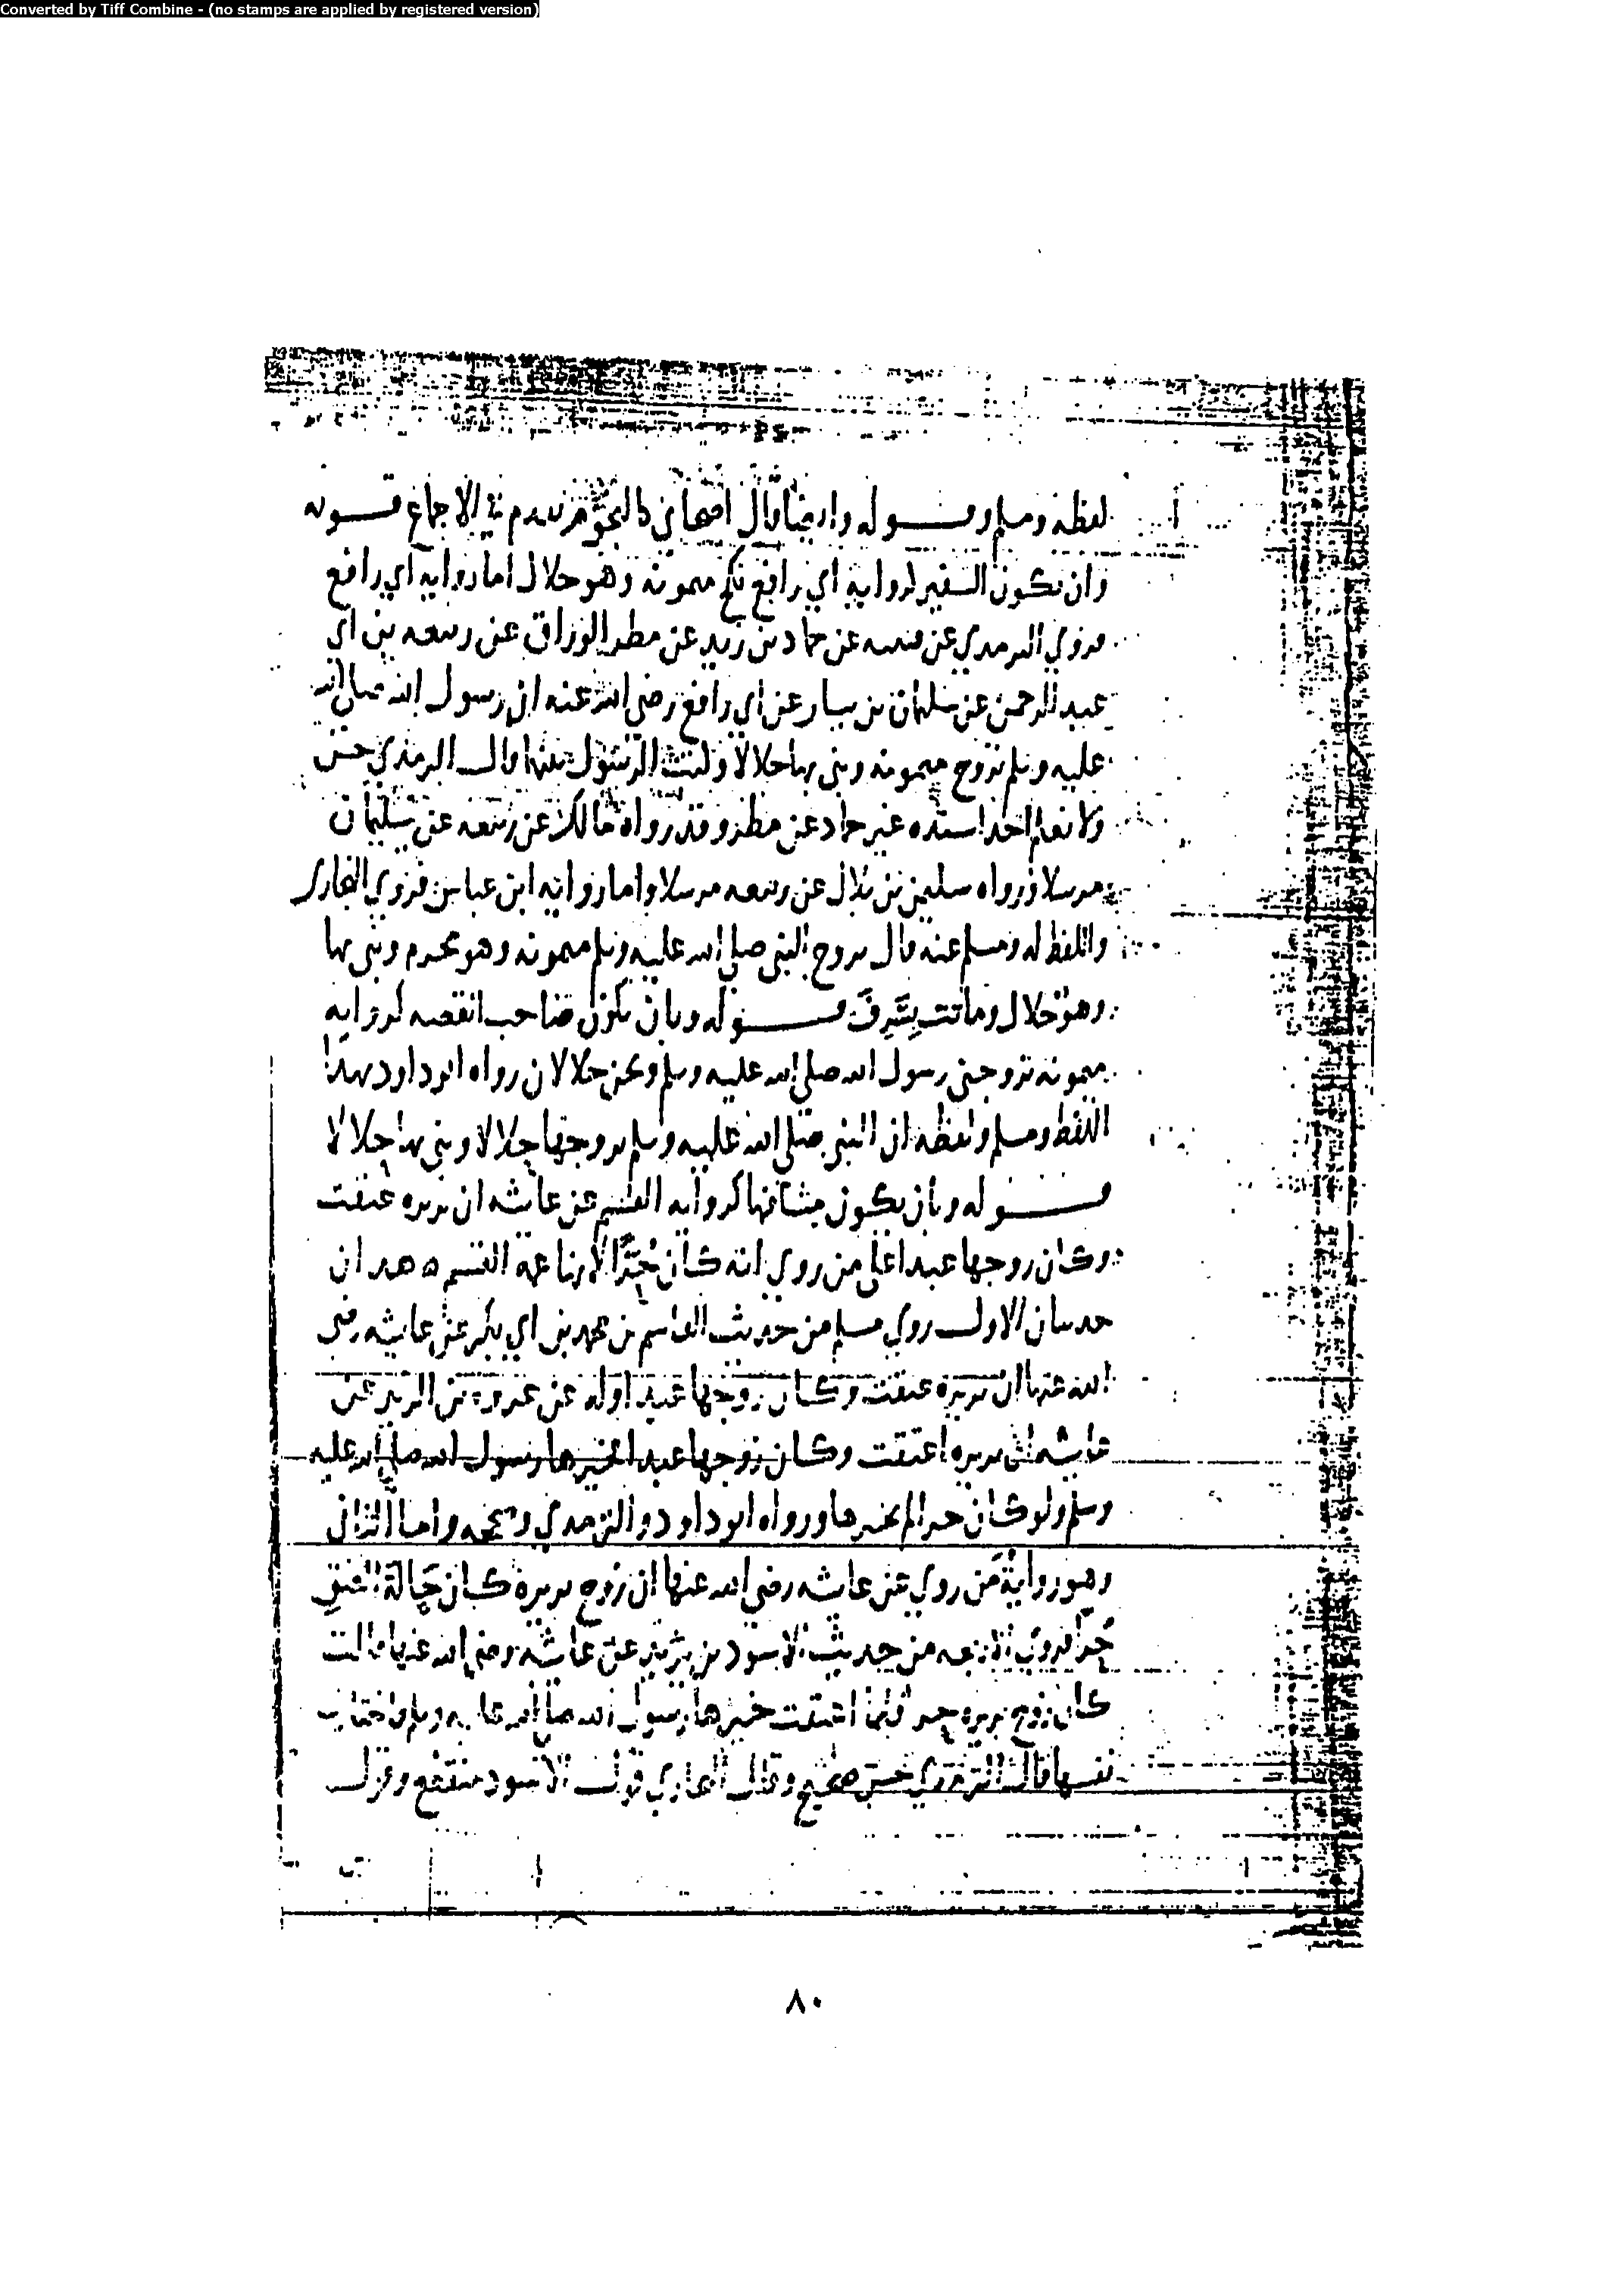 Converted by Tiff Combine - (no stamps are applied by registered version)
لفظه ومسلم قوله وايضا قال اصحابي كالنجوم تقدم في الاجماع قوله
وان يكون السفير لرواية ابي رافع نكح ميمونه وهو حلال اما رواية ابي رافع
فروي الترمذي عن قتيبه عن حماد بن زيد عن مطر الوراق عن ربيعه بن ابي
عبد الرحمن عن سليمان بن يسار عن ابي رافع رضي الله عنه ان رسول الله صلى الله
عليه وسلم تزوج ميمونه وبنى بها حلالا وكنت الرسول بينهما قال الترمذي حسن
ولا نعلم احدا اسنده غير حماد عن مطر وقد رواه مالك عن ربيعه عن سليمان
مرسلا ورواه سليمن بن بلال عن ربيعه مرسلا واما رواية ابن عباس فروي البخاري
واللفظ له ومسلم عنه قال تزوج النبي صلى الله عليه وسلم ميمونه وهو محرم وبنى بها
وهو حلال وماتت بسَرِفَ قوله وبان يكون صاحب القصه كرواية
ميمونه تزوجني رسول الله صلى الله عليه وسلم ونحن حلالان رواه ابو داود بهذا
اللفظ ومسلم ولفظه ان النبي صلى الله عليه وسلم تزوجها حلالا وبنى بها حلالا
قوله وبان يكون مشافها كرواية القسم عن عائشه ان بريره عتقت
وكان زوجها عبدا على من روي انه كان حُرًّا لانها عمة القسم ه هذان
حديثان الاول روي مسلم من حديث القاسم بن محمد بن ابي بكر عن عايشه رضي
الله عنها ان بريره عتقت وكان زوجها عبدا وله عن عروة بن الزبير عن
عايشه ان بريره اعتقت وكان زوجها عبدا فخيرها رسول الله صلى الله عليه
وسلم ولو كان حرا لم يخيرها ورواه ابو داود والترمذي وصححه واما الثاني
وهو روايةُ مَن روي عن عائشه رضي الله عنها ان زوج بريره كان حَالَةَ العتقِ
حُرّا فروي الاربعه من حديث الاسود بن يزيد عن عائشه رضي الله عنها قالت
كان زوج بريره حرا فلما اعتقت خيرها رسول الله صلى الله عليه وسلم فاختارت
نفسها قال الترمذي حسن صحيح وقال البخاري قول الاسود منقطع وقول
٨٠